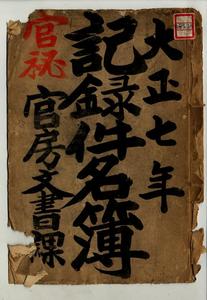 大正七年
記録件名簿
官房文書課
官秘